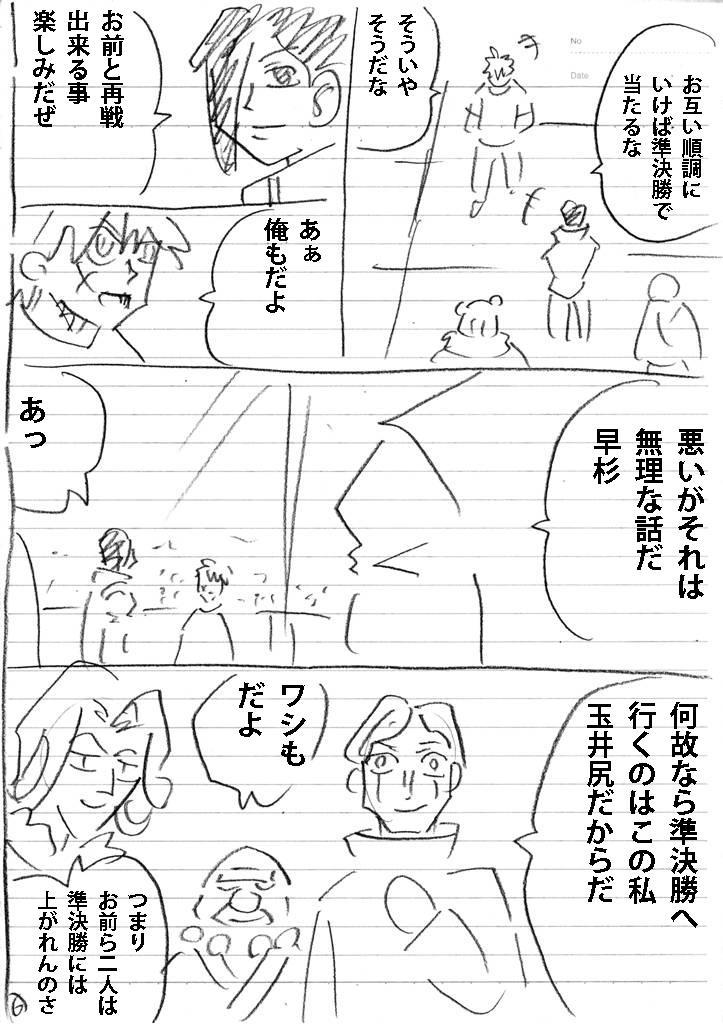 No
Date
お互い順調に
いけば準決勝で
当たるな
そういや
そうだな
お前と再戦
出来る事
楽しみだぜ
あぁ
俺もだよ
悪いがそれは
無理な話だ
早杉
あっ
何故なら準決勝へ
行くのはこの私
玉井尻だからだ
ワシも
だよ
つまり
お前ら二人は
準決勝には
上がれんのさ